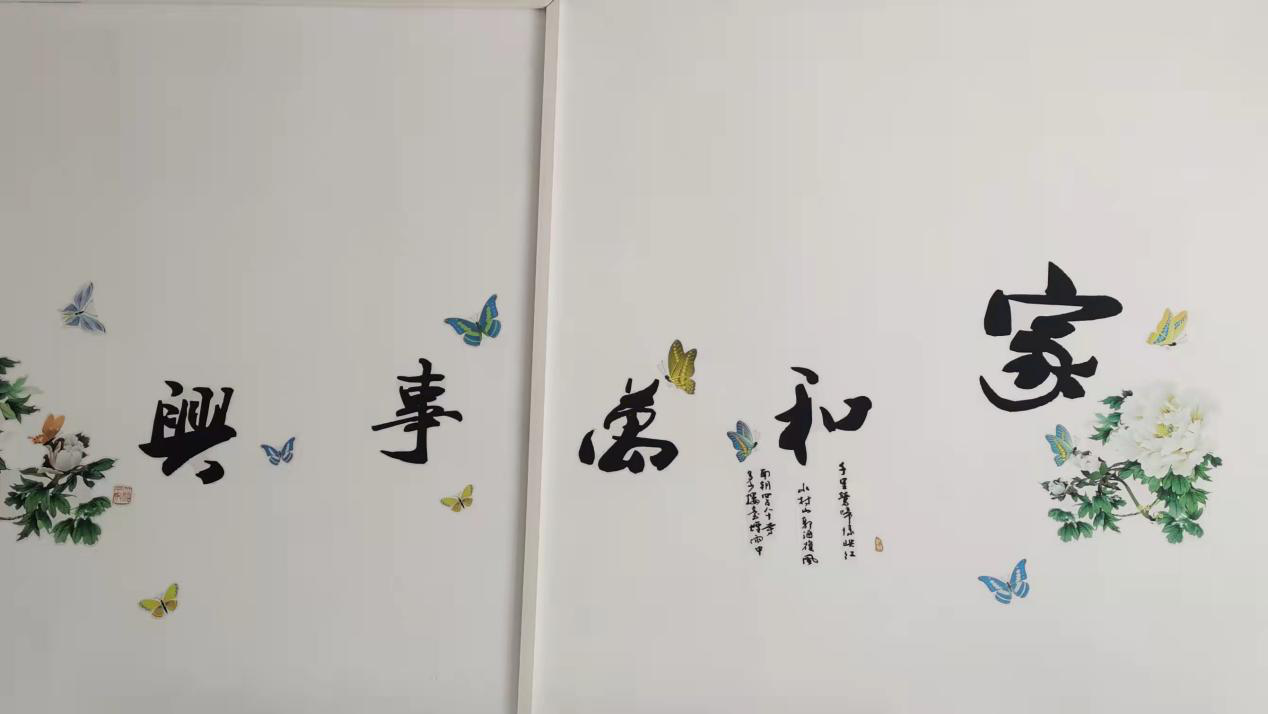 家和萬事興
千里鶯啼綠映紅
水村山郭酒旗風
南朝四百八十寺
多少樓臺煙雨中